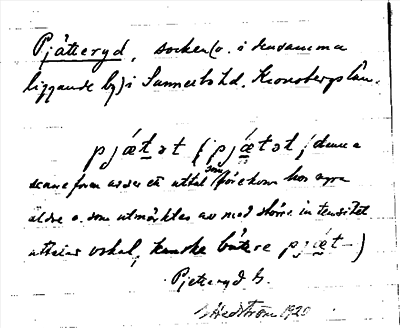 Pjätteryd, socken (o. i densamma
liggande by) i Sunnerbo hd, Kronobergs län.
pjæt̲ət (pjæ̲tət; denna
senare form avser ett uttal som förekom hos några
äldre o. som utmärktes av med större intensitet
uttalad vokal, kanske bättre pjæ̲t-)
Pjetteryd s.
Hedström 1920